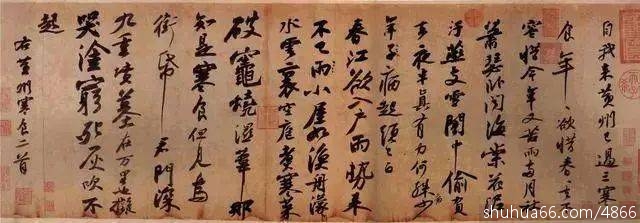 自我來黃州已過三寒
食年〻欲惜春春去不
容惜今年又苦雨兩月秋
蕭瑟卧聞海棠花泥
汙燕支雪闇中偷負
去夜半真有力何殊病少
年子病起須已白
春江欲入户雨勢來
不已雨小屋如漁舟濛〻
水雲裏空庖煮寒菜
破竈燒濕葦那
知是寒食但見烏
銜帋君門深
九重墳墓在万里也擬
哭塗窮死灰吹不
起
右黃州寒食二首
shuhua66.com/4866